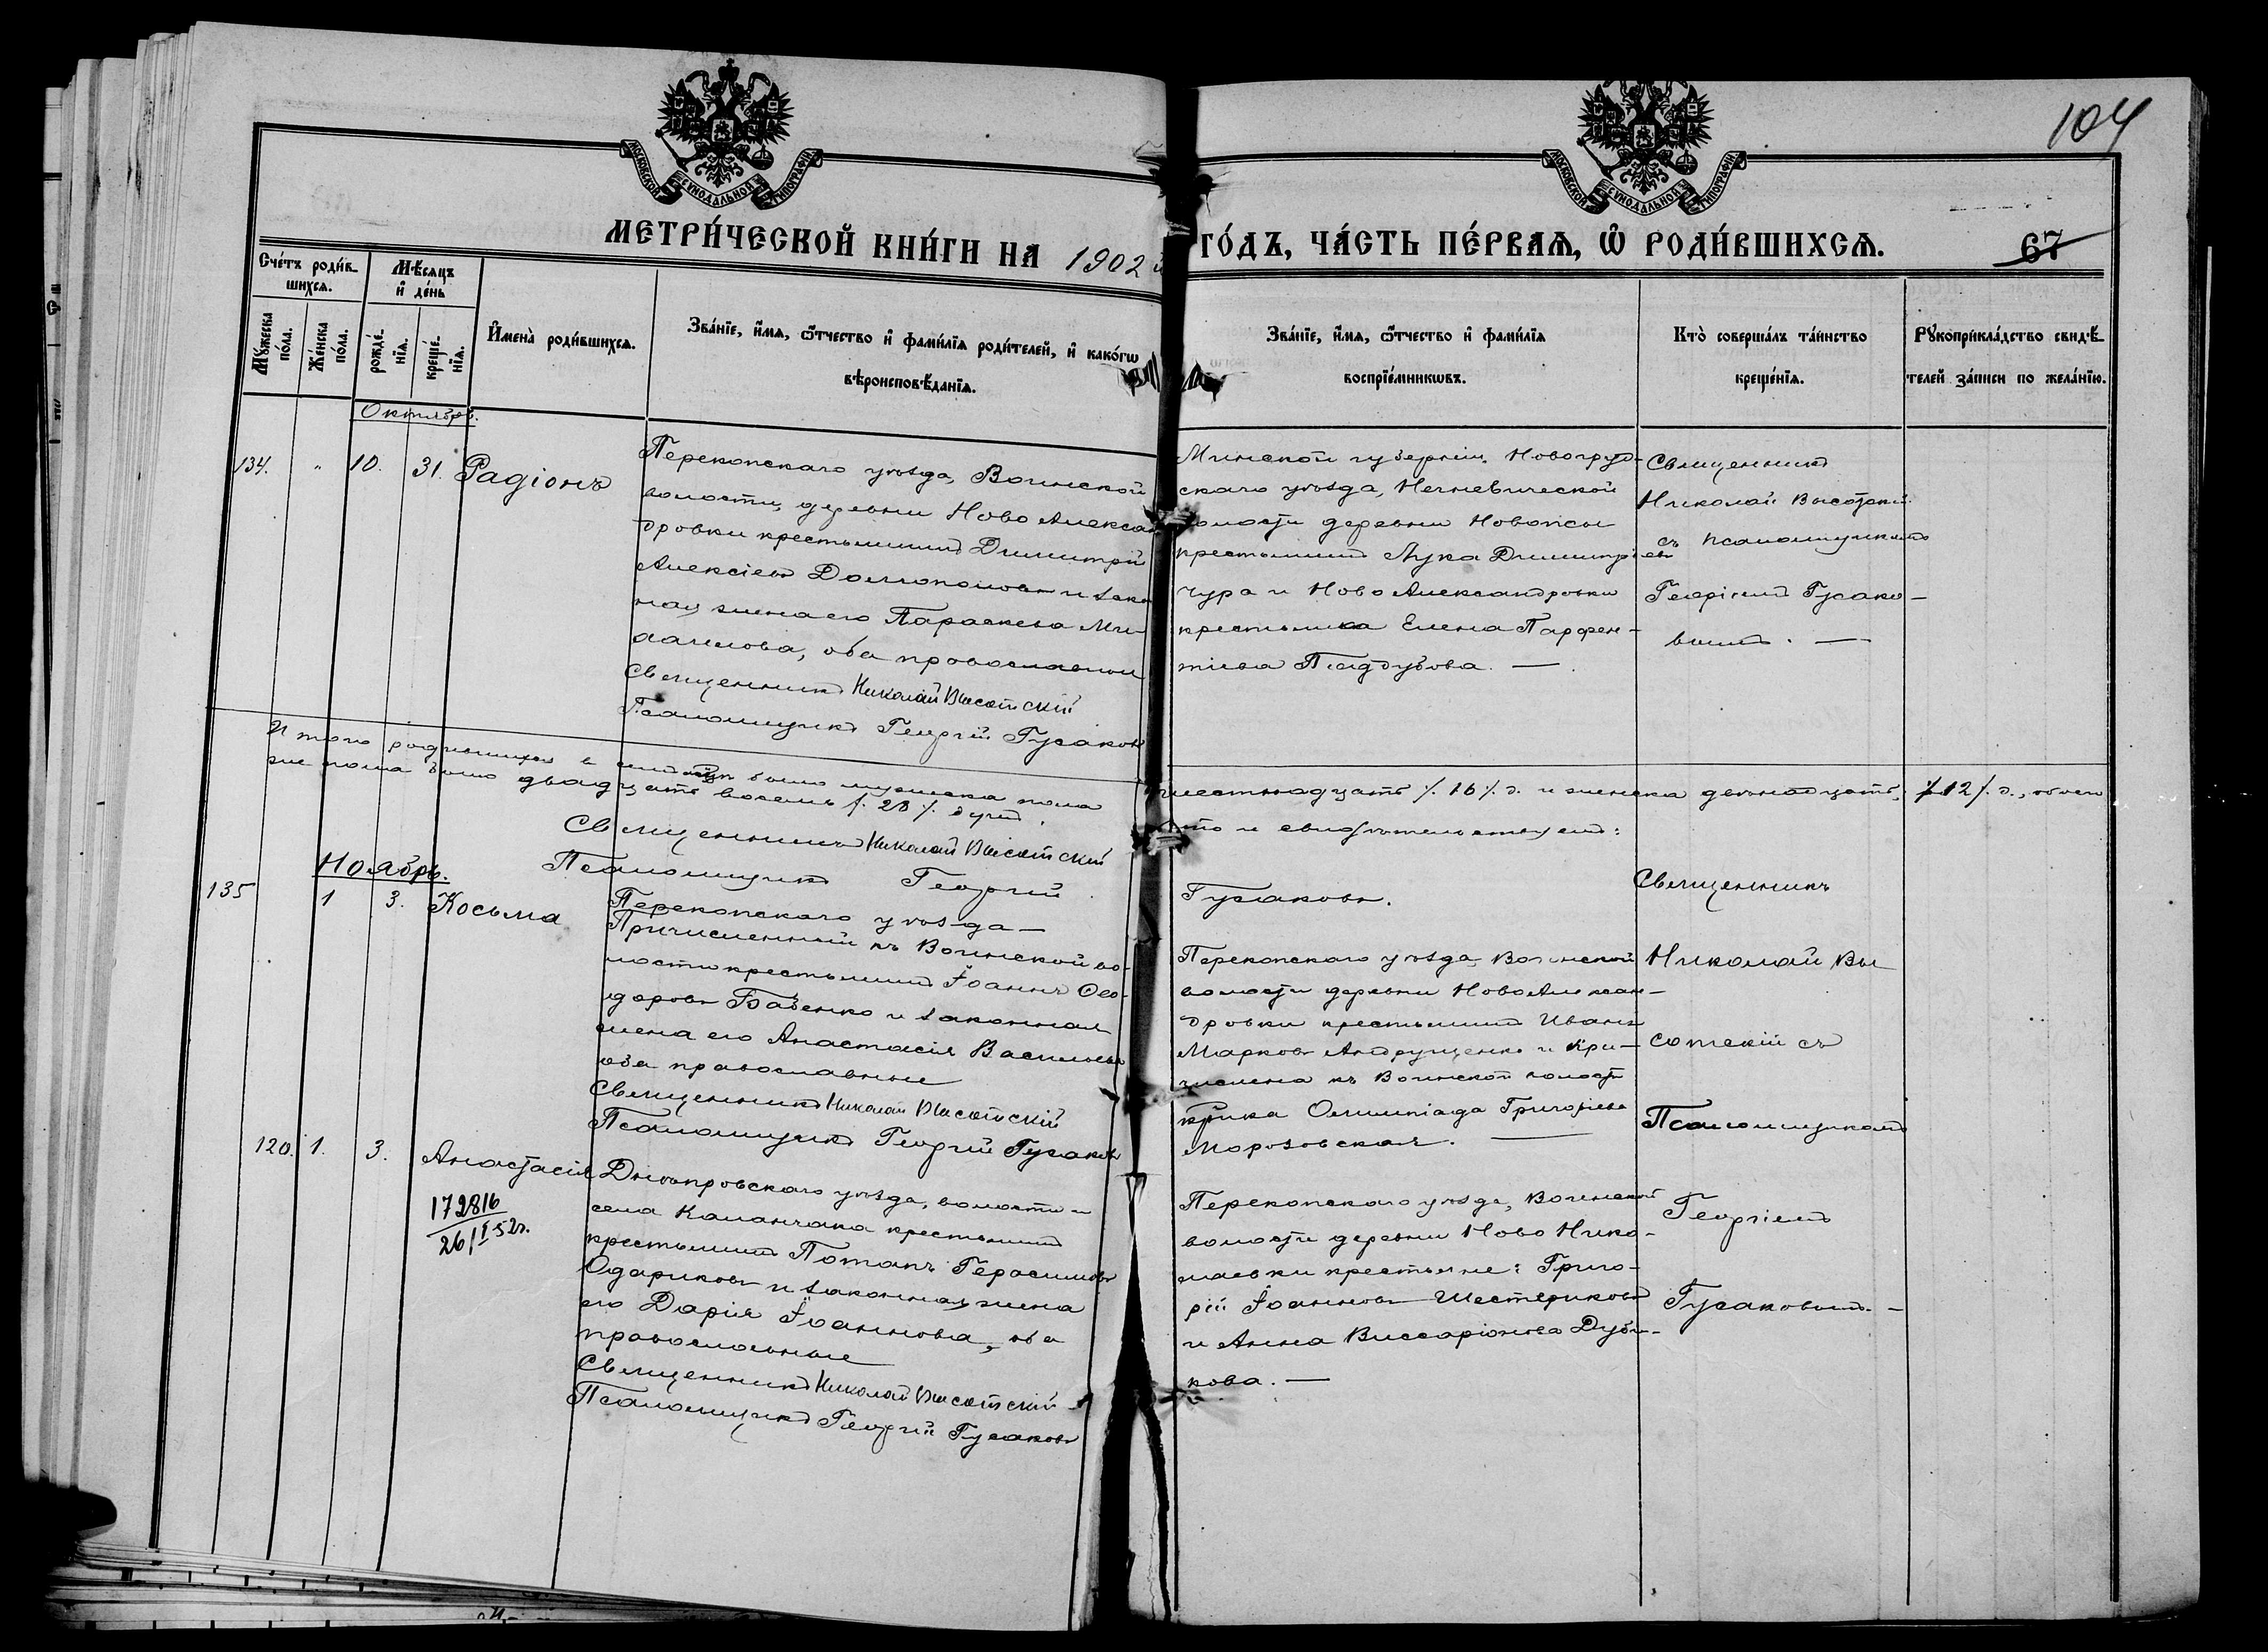 104
МОСКОВСКОЙ СѴНОДАЛЬНОЙ ТИПОГРАФІИ
МОСКОВСКОЙ СѴНОДАЛЬНОЙ ТИПОГРАФІИ
МЕТРИ́ЧЕСКОЙ КНИ́ГИ НА 1902 й ГО́ДЪ, ЧА́СТЬ ПЕ́РВАѦ, Ѽ РОДИ́ВШИХСѦ.
67
Сче́тъ роди́в-
шихсѧ.
Мѣ́сѧцъ
и҆ де́нь
Мꙋ́жеска
по́ла.
Же́нска
по́ла.
рожде́-
нїѧ.
креще́-
нїѧ.
И҆мена̀ роди́вшихсѧ.
Зва́нїе, и҆́мѧ, ѻ҆́тчество и҆ фами́лїѧ роди́телей, и҆ како́гѡ
вѣроисповѣ́данїѧ.
Зва́нїе, и҆́мѧ, ѻ҆́тчество и҆ фами́лїѧ
воспрїе́мникѡвъ.
Кто̀ соверша́лъ та́инство
креще́нїѧ.
Рꙋкоприкла́дство свидѣ́-
телей за́писи по жела́нїю.
Октябрь.
134. " 10. 31. Радіонъ
Перекопскаго уѣзда, Воинской
волости, деревни Ново Алекса-
дровки крестьянинъ Димитрій
Алексіевъ и закон
ная жена его Параскева Ми-
оба православные
Священникъ Николай Высотскій
Псаломщикъ Георгій Гусаковъ
Минской губерніи, Новогруд-
скаго уѣзда,
волости деревни
крестьянинъ Лука Димитріевъ
Чура и Ново Александровки
крестьянка Елена Парфен-
тіева Поддубова. —
Священникъ
Николай Высотскій
съ псаломщикомъ
Георгіемъ Гусако-
вымъ. —
Итого родившихся въ было мужеска пола шестнадцать /. 16 /. д. и женска двѣнадцать, /. 12 /. д., обоего
же пола было двадцать восемь /. 28 /. душъ. Что и свидѣтельствуемъ:
Священникъ Николай Высотскій
Псаломщикъ Георгій Гусаковъ.
Ноябрь.
135 1 3. Косьма
Перекопскаго уѣзда —
Причисленный къ Воинской во-
лости крестьянинъ Іоаннъ Ѳео-
доровъ Бабенко и законная
жена его Анастасія Васильева
оба православные
Священникъ Николай Высотскій
Псаломщикъ Георгій Гусаковъ
Перекопскаго уѣзда Воинской
волости деревни Ново Алексан-
дровки крестьянинъ Иванъ
Марковъ Андрущенко и при-
числена къ Воинской волости
кр-ка Олимпіада Григоріева
Морозовская. —
Священникъ
Николай Вы
сотскій съ
Псаломщикомъ
Георгіемъ
Гусаковымъ. —
120. 1. 3. Анастасія
172816
26/I 52г.
Днѣпровскаго уѣзда, волости и
села Каланчака крестьянинъ
крестьянинъ Потапъ Герасимовъ
Одариковъ и законная жена
его Дарія Іоаннова, оба
православные
Священникъ Николай Высотскій
Псаломщикъ Георгій Гусаковъ
Перекопскаго уѣзда, Воинской
волости деревни Ново Нико-
лаевки крестьяне: Григо-
рій Іоанновъ Шестериковъ
и Анна Виссаріонова Дуби-
кова. —